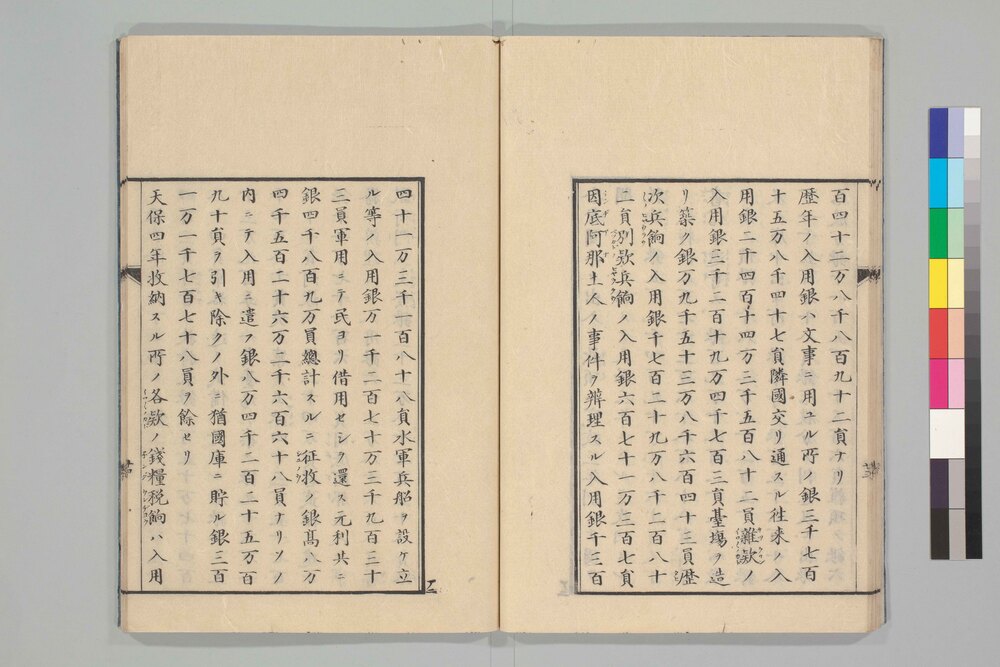 百四十二万八千八百九十二員ナリ
歴年ノ入用銀ハ文事ニ用ユル所ノ銀三千七百
十五万八千四十七員隣國交リ通スル往来ノ入
用銀二千四百十四万三千五百八十二員雜欵ノ
入用銀三千二百十九万四千七百三員臺塲ヲ造
リ築ク銀万九千五十三万八千六百四十三員歴
次兵餉ノ入用銀千七百二十九万八千二百八十
二員別欵兵餉ノ入用銀六百七十一万三百七員
因底阿那土人ノ事件ヲ辨理スル入用銀千三百
四十一万三千一百八十八員水軍兵船ヲ設ケ立
ル等ノ入用銀万一千二百七十万三千九百三十
三員軍用ニテ民ヨリ借用セシヲ還ス元利共ニ
銀四千八百九万員總計スルニ征收ノ銀髙八万
四千五百二十六万二千六百六十八員ナリソノ
内ニテ入用ニ遣フ銀八万四千二百二十五万百
九十員ヲ引キ除クノ外ニ猶國庫ニ貯ル銀三百
一万一千七百七十八員ヲ餘セリ
天保四年收納スル所ノ各欵ノ錢糧税餉ハ入用